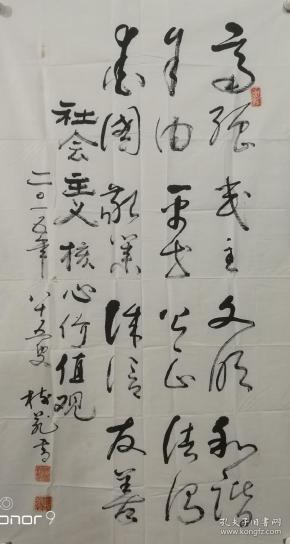 富强民主文明和谐
自由平等公正法治
爱国敬业诚信友善
社会主义核心价值观
二〇一五年八十五叟 书
honor 9
孔夫子旧书网